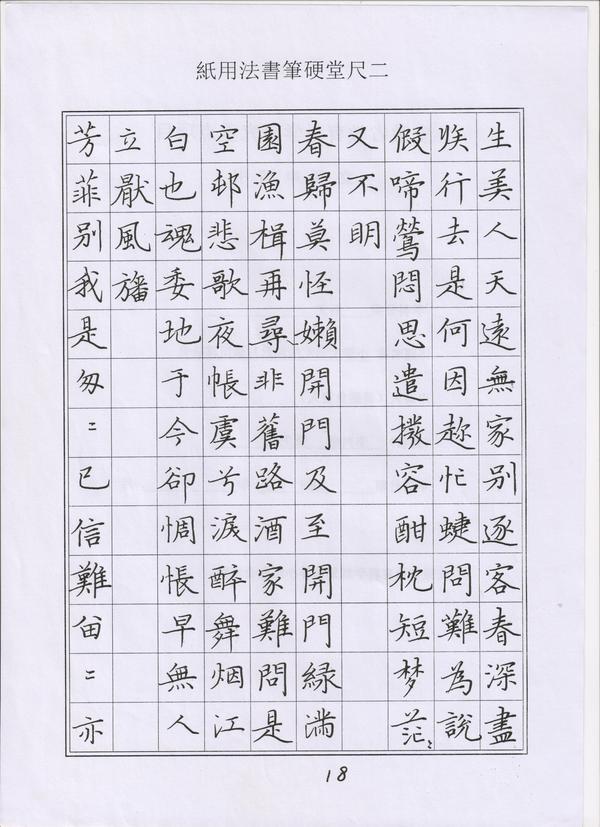 二尺堂硬筆書法用紙
生美人天遠無家别逐客春深盡
疾行去是何因趂忙蜨問難為說
假啼鶯悶思遣撥容酣枕短梦茫〻
又不明
春歸莫怪嬾開門及至開門緑满
園漁楫再尋非舊路酒家難問是
空邨悲歌夜帳虞兮淚醉舞烟江
白也魂委地于今卻惆悵早無人
立厭風旛
芳菲别我是匆〻已信難留〻亦
18